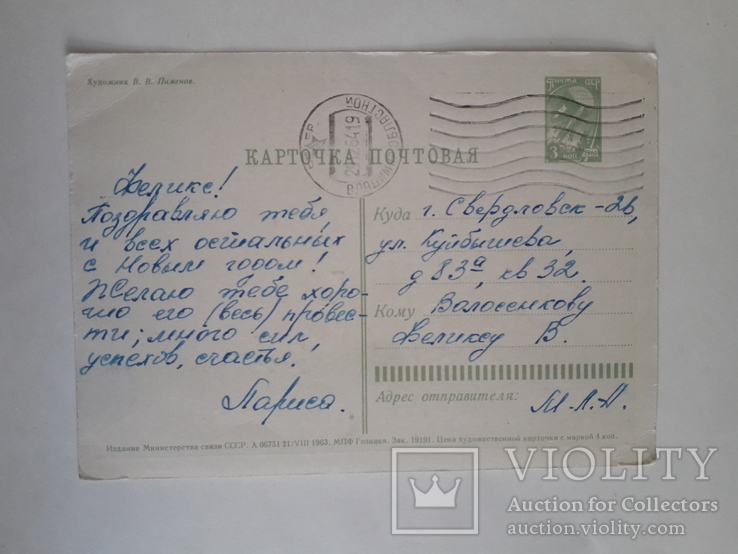 Художник В. В. Пименов.
ПОЧТА СССР
3 коп
КАРТОЧКА ПОЧТОВАЯ
Феликс!
Поздравляю тебя,
и всех остальных
с Новым годом!
Желаю тебе хоро-
шо его (весь) провес-
ти; много сил,
успехов, счастья.
Лариса.
Куда г. Свердловск-26,
ул. Куйбышева,
д 83а, кв 32.
Кому Волосенкову
Феликсу В.
Адрес отправителя: М-Л-Д.
Издание Министерства связи СССР. А 06751 21/VIII 1963. МПФ Гознака. Зак. 19191. Цена художественной карточки с маркой 4 коп.
VIOLITY
Auction for Collectors
auction.violity.com